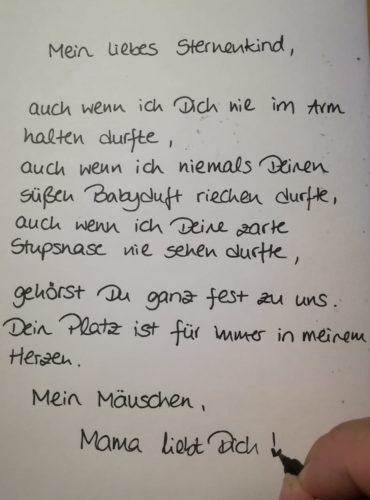 Mein liebes Sternenkind,
auch wenn ich Dich nie im Arm
halten durfte,
auch wenn ich niemals Deinen
süßen Babyduft riechen durfte,
auch wenn ich Deine zarte
Stupsnase nie sehen durfte,
gehörst Du ganz fest zu uns.
Dein Platz ist für immer in meinem
Herzen.
Mein Mäuschen,
Mama liebt Dich!